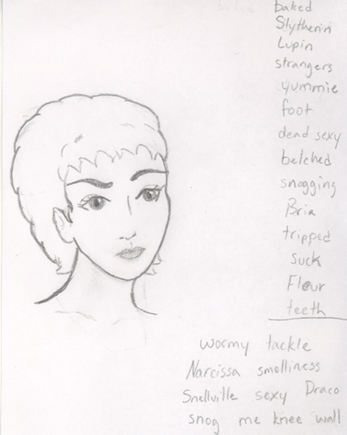 baked
Slytherin
Lupin
strangers
yummie
foot
dead sexy
belched
snogging
Bria
tripped
suck
Fleur
teeth
wormy tackle
Narcissa smelliness
Snellville sexy Draco
snog me knee wall